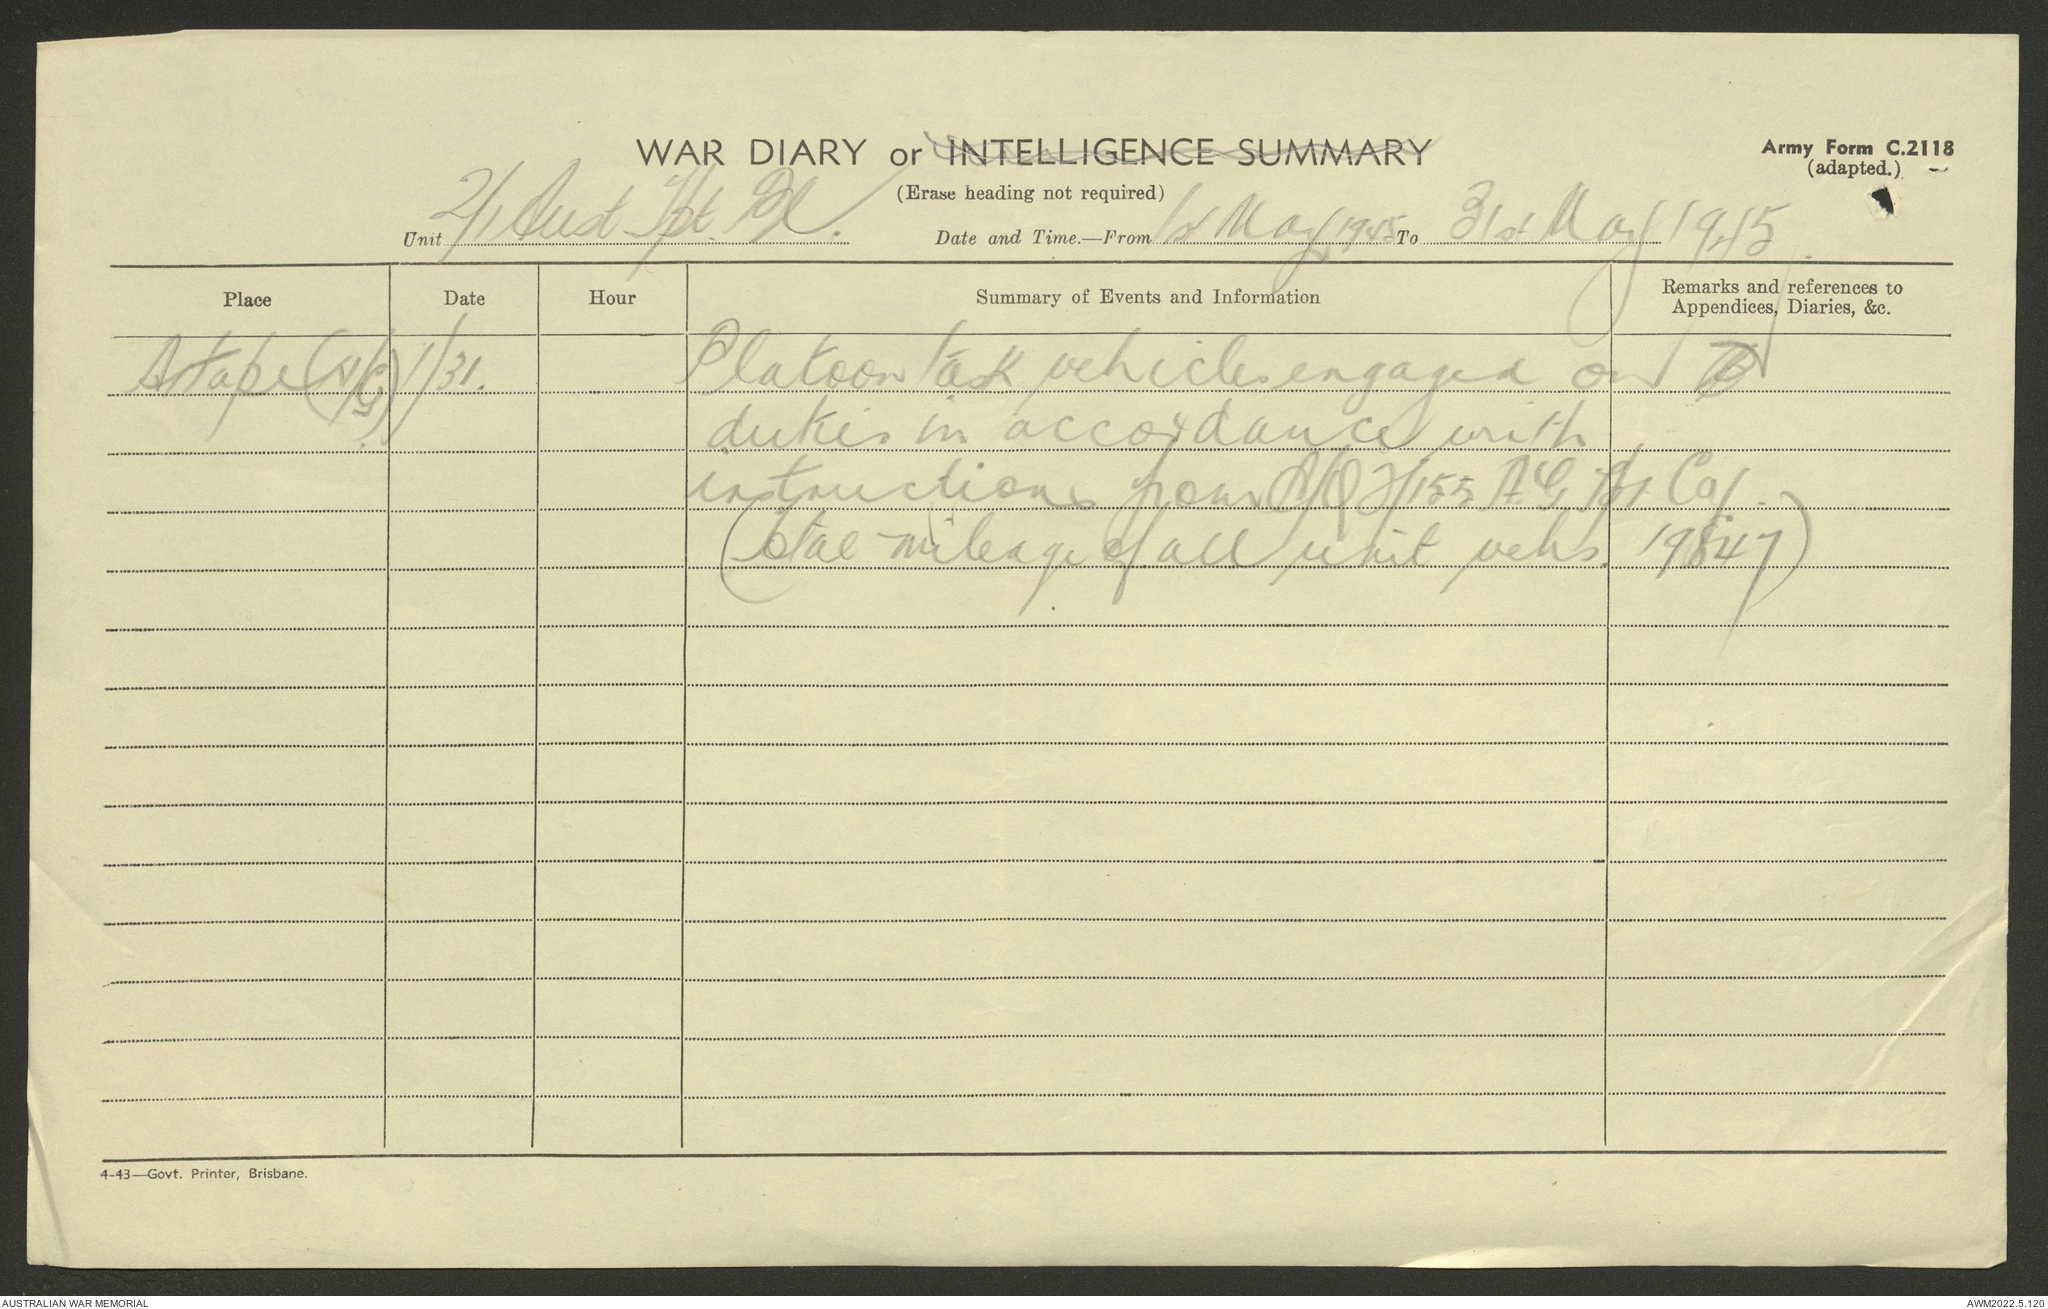 WAR DIARY or INTELLIGENCE SUMMARY
Army Form C.2118
(adapted.)
(Erase heading not required)
Unit 2/1 Aust Tpt. Pl. Date and Time.—From 1st May 1945 To 31st May 1945.
Place Date Hour Summary of Events and Information Remarks and references to
Appendices, Diaries, &c.
Aitape 1/31. Platoon task vehicles engaged on
duties in accordance with
instructions from 2/155 A.G. Tpt. Coy.
(total mileage of all unit vehs. 19847)
4-43—Govt. Printer, Brisbane.
AUSTRALIAN WAR MEMORIAL
AWM2022.5.120